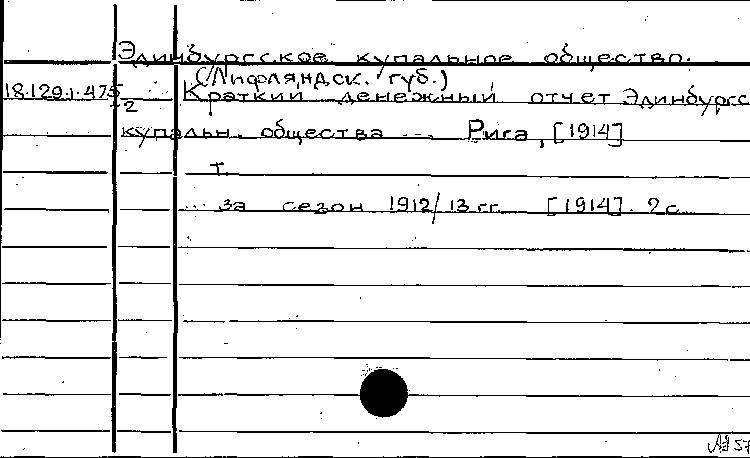 Эдинбургское купальное общество.
(Лифляндск. губ.)
18.129.1.475 Краткий денежный отчет Эдинбургс
2
купальн. общества ... Рига, [1914]
т.
... за сезон 1912/13 гг. [1914]. 2 с.